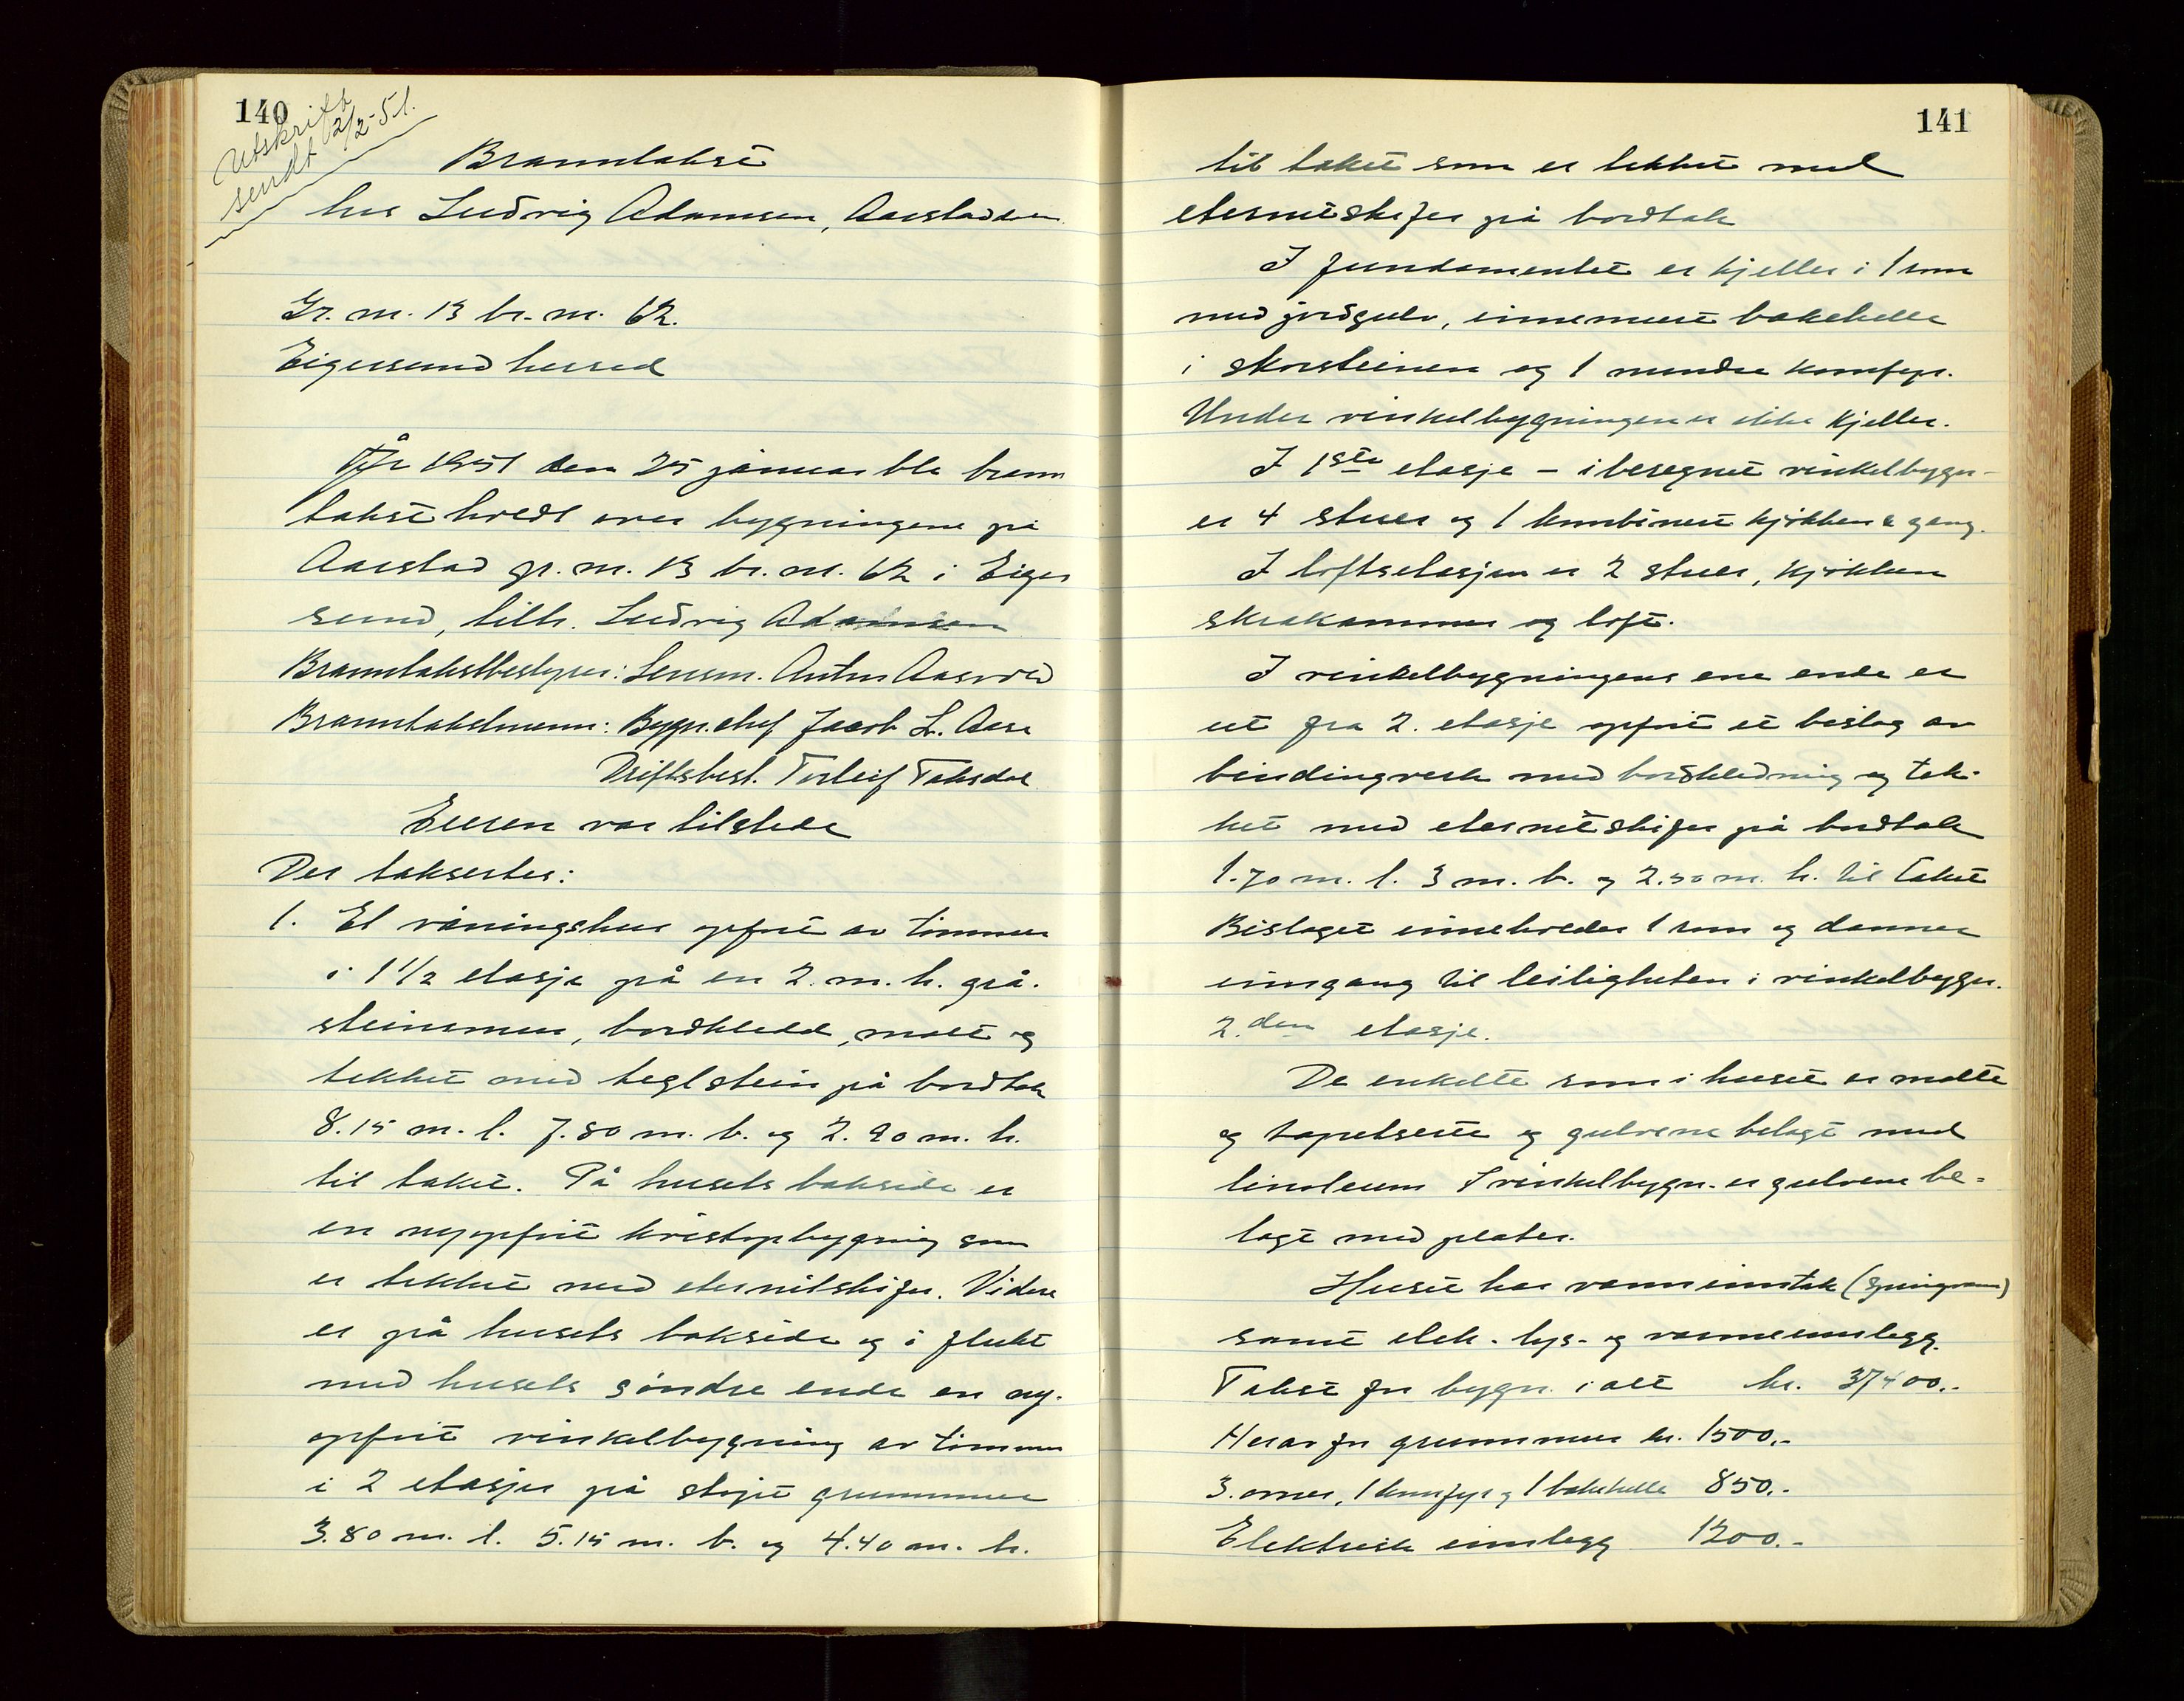 140
Utskrift
sendt 12/2-51.
Branntakst
hos Ludvig Adamsen, Aarstaddalen
Gr. nr. 13 br. nr. 62.
Eigersund herred
År 1951 den 25 januar ble brann
takst holdt over bygningene på
Aarstad gr. nr. 13 br. nr. 62 i Eiger
sund, tilh. Ludvig Adamsen
Branntakstbestyrer: Lensm. Anton Aasved
Branntakstmenn: Bygn.chef Jacob L. Aase
Driftsbest. Torleif Taksdal
Eieren var tilstede
Der taksertes:
1. Et våningshus opført av tømmer
i 1 1/2 etasje på en 2. m. h. grå-
steinsmur, bordkledd, malt og
tekket med teglstein på bordtak
8.15 m. l. 7.80 m. b. og 2.90 m. h.
til taket. På husets bakside er
en nyopført kvistopbygning som
er tekket med eternitskifer. Videre
er på husets bakside og i flukt
med husets søndre ende en ny-
opført vinkelbygning av tømmer
i 2 etasjer på støpt grunnmur
3.80 m. l. 5.15 m. b. og 4.40 m. h.
141
til taket som er tekket med
eternitskifer på bordtak
I fundamentet er kjeller i 1 rom
med jordgulv, innemuret bakehelle
i skorsteinen og 1 mindre komfyr.
Under vinkelbygningen er ikke kjeller.
I 1ste etasje - iberegnet vinkelbygn-
er 4 stuer og 1 kombinert kjøkken & gang.
I loftsetasjen er 2 stuer, kjøkken
skråkammer og loft.
I vinkelbygningens ene ende er
ut fra 2. etasje opført et bislag av
bindingverk med bordkledning og tek-
ket med eternitskifer på bordtak
1.70 m. l. 3 m. b. og 2.50 m. h. til taket
Bislaget inneholder 1 rom og danner
inngang til leiligheten i vinkelbygn.
2.den etasje.
De enkelte rom i huset er malte
og tapetserte og gulvene belagt med
linoleum I vinkelbygn. er gulvene be-
lagt med plater.
Huset har vanninntak (springvann)
samt elek. lys- og varmeinnlegg.
Takst for bygn. i alt kr. 37400.-
Herav for grunnmur kr. 1500.-
3. ovner, 1 komfyr og 1 bakehelle 850.-
Elektrisk innlegg 1200.-